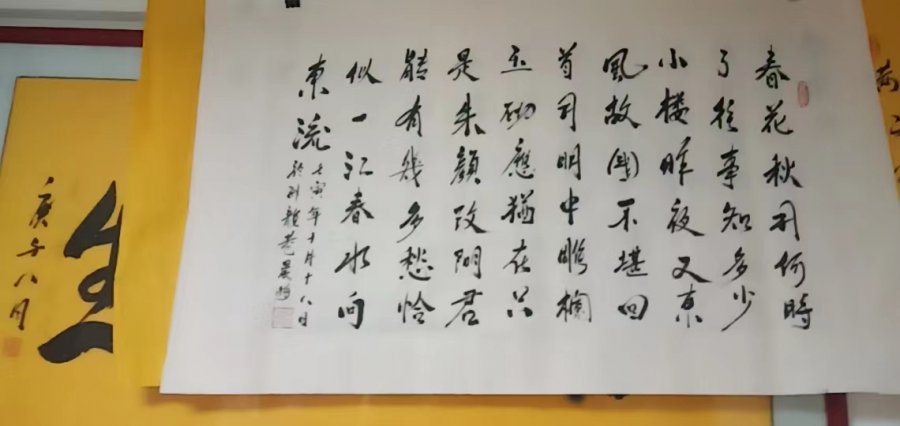 春花秋月何時
了往事知多少
小楼昨夜又東
風故國不堪回
首月明中雕欄
玉砌應猶在只
是朱顔改問君
能有幾多愁恰
似一江春水向
東流
壬寅年十月十八日
庚午八月